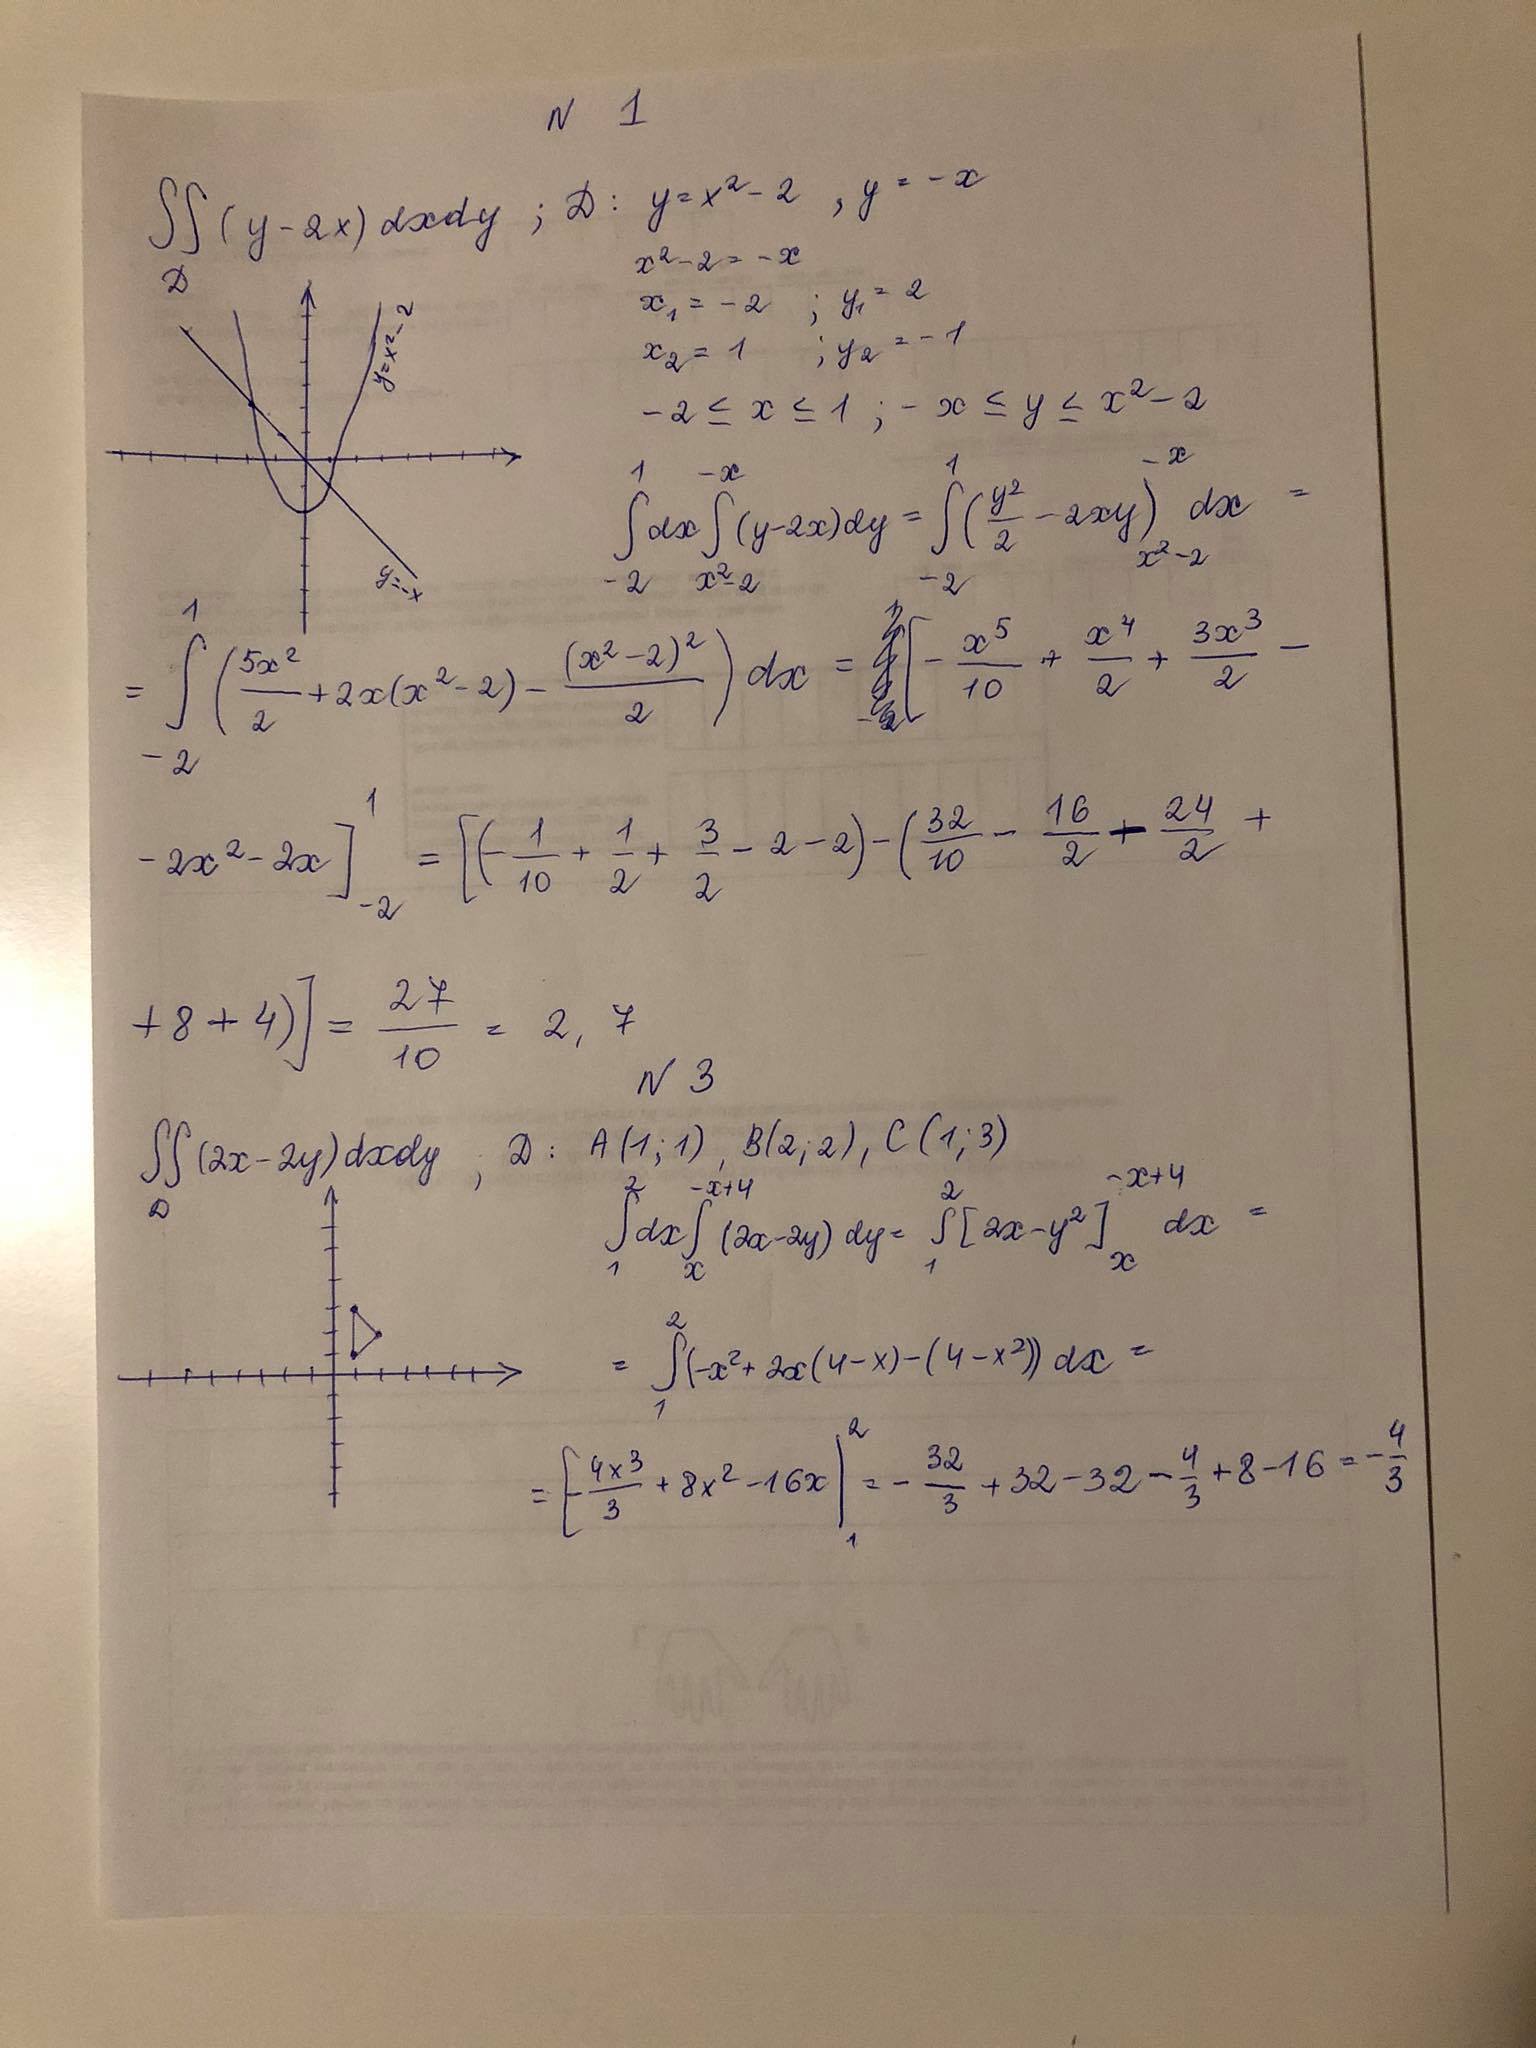 N 1
∬_D (y-2x) dxdy ; D: y=x²-2 , y=-x
x²-2=-x
x₁=-2 ; y₁=2
x₂=1 ; y₂=-1
y=x²-2
-2≤x≤1 ; -x≤y≤x²-2
∫_{-2}^{1} dx ∫_{x²-2}^{-x} (y-2x)dy = ∫_{-2}^{1} (y²/2 - 2xy)_{x²-2}^{-x} dx =
y=-x
= ∫_{-2}^{1} (5x²/2 + 2x(x²-2) - (x²-2)²/2) dx = [-x⁵/10 + x⁴/2 + 3x³/2 -
-2x²-2x]_{-2}^{1} = [(-1/10 + 1/2 + 3/2 -2-2)-(32/10 - 16/2 + 24/2 +
+8+4)] = 27/10 = 2,7
N 3
∬_D (2x-2y)dxdy ; D: A(1;1), B(2;2), C(1;3)
∫_{1}^{2} dx ∫_{x}^{-x+4} (2x-2y) dy = ∫_{1}^{2} [2x-y²]_{x}^{-x+4} dx =
= ∫_{1}^{2} (-x²+2x(4-x)-(4-x²)) dx =
= [-4x³/3 + 8x²-16x|_{1}^{2} = -32/3 + 32-32 - 4/3 + 8-16 = -4/3